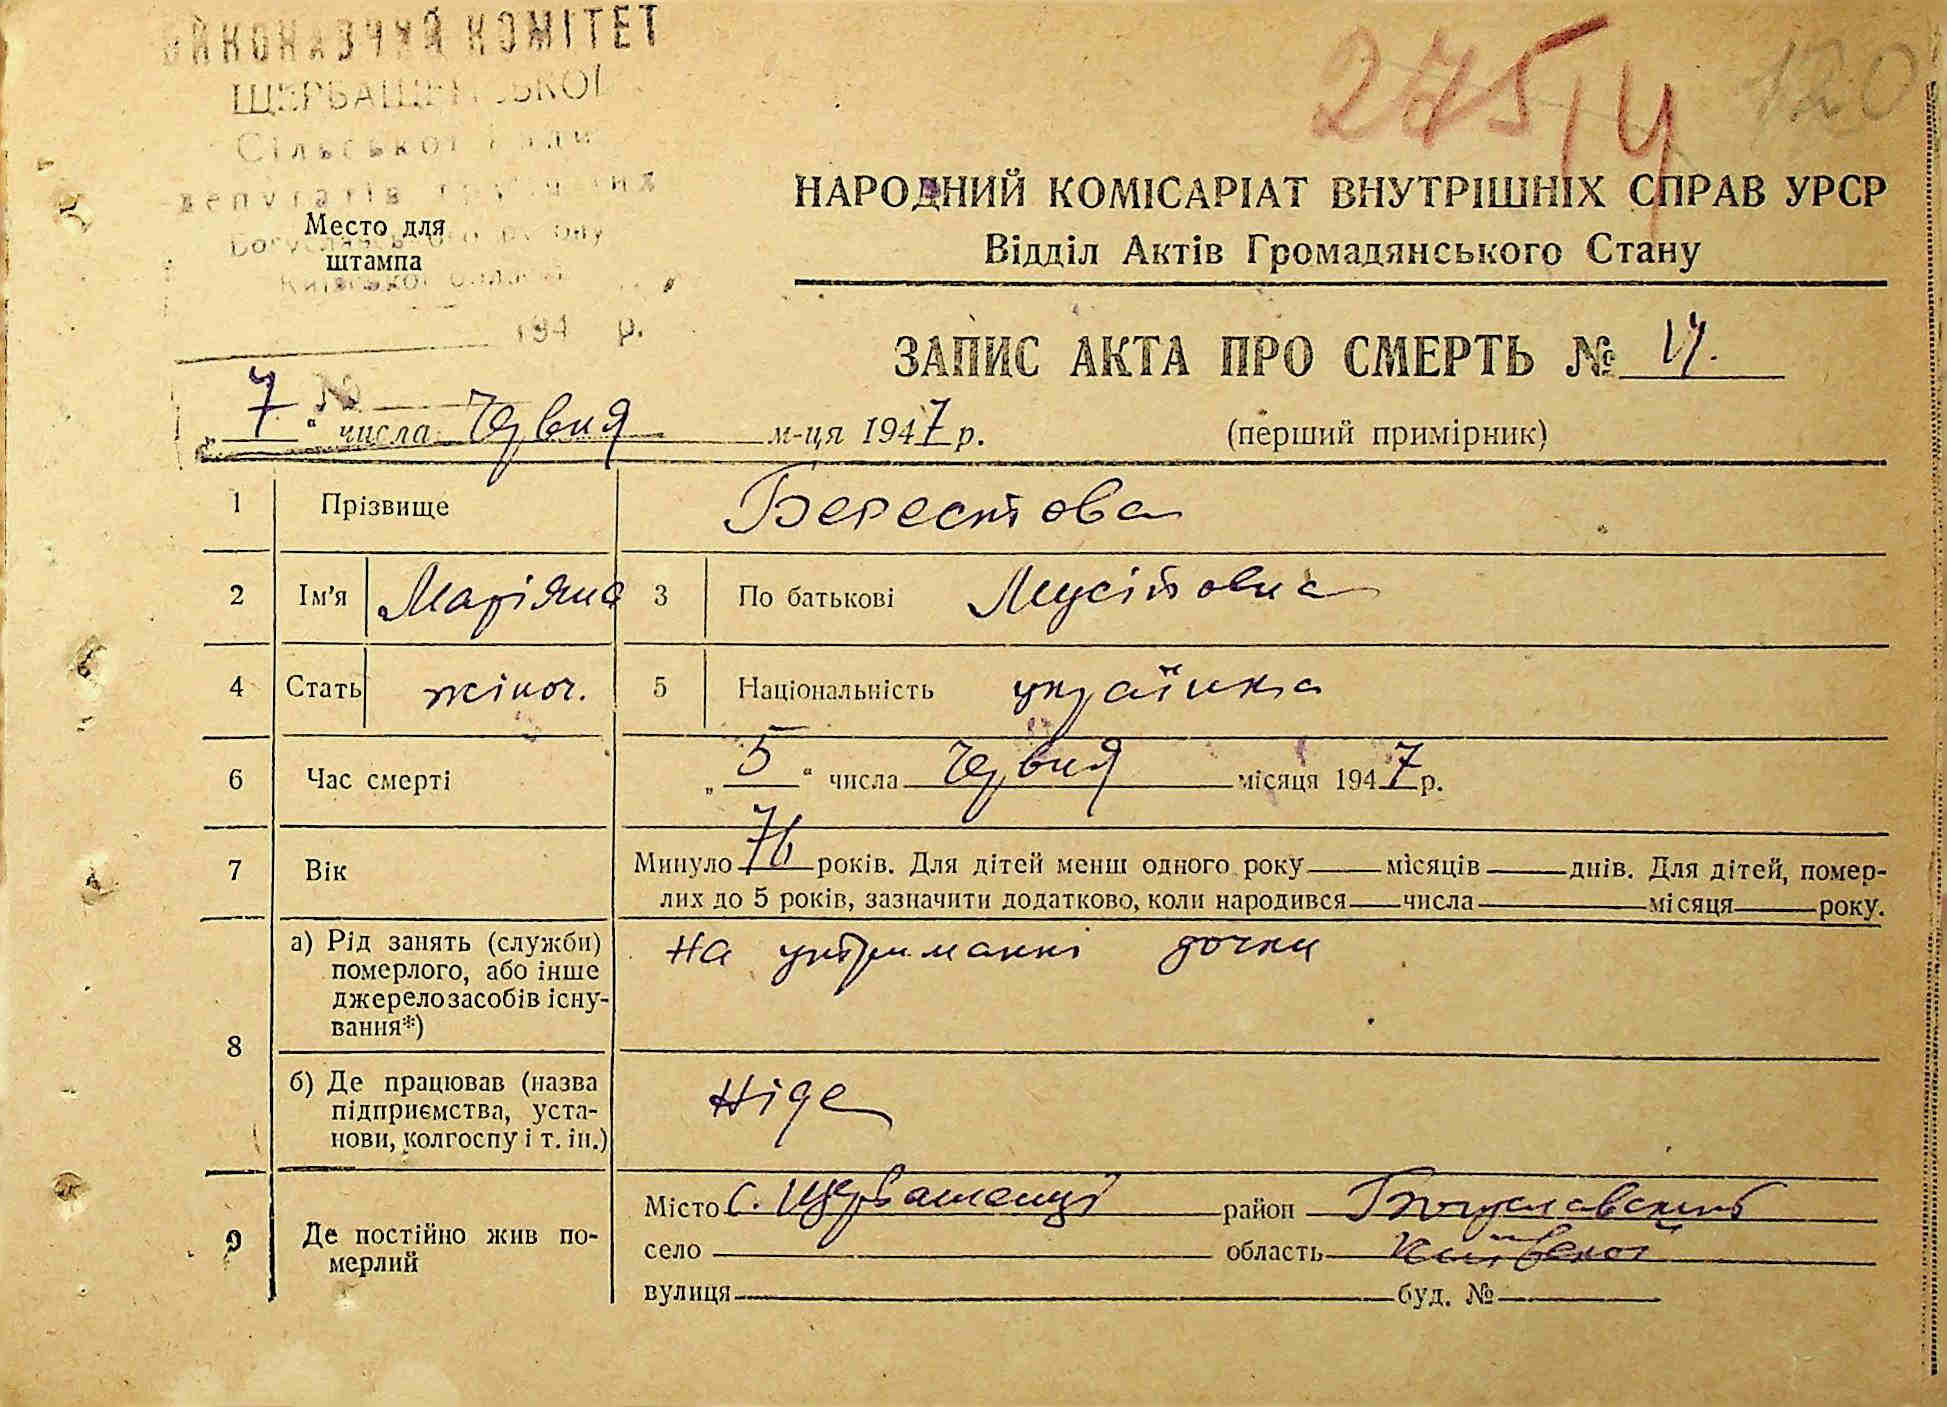 ВИКОНАВЧИЙ КОМІТЕТ
Сільської Ради
депутатів
Київської
194 р.
275
120
Место для
штампа
НАРОДНИЙ КОМІСАРІАТ ВНУТРІШНІХ СПРАВ УРСР
Відділ Актів Громадянського Стану
ЗАПИС АКТА ПРО СМЕРТЬ №
„ 7 “ числа Червня м-ця 1947 р.
(перший примірник)
1 Прізвище Берестова
2 Ім'я Маріяна 3 По батькові
4 Стать жіноч. 5 Національність українка
6 Час смерті „ 5 “ числа Червня місяця 1947 р.
7 Вік Минуло 76 років. Для дітей менш одного року місяців днів. Для дітей, помер-
лих до 5 років, зазначити додатково, коли народився числа місяця року.
8 а) Рід занять (служби) на утриманні дочки
померлого, або інше
джерело засобів існу-
вання*)
б) Де працював (назва Ніде
підприємства, уста-
нови, колгоспу і т. ін.)
9 Де постійно жив по-
мерлий
Місто с. Щербашенці район Богуславський
село область Київської
вулиця буд. №